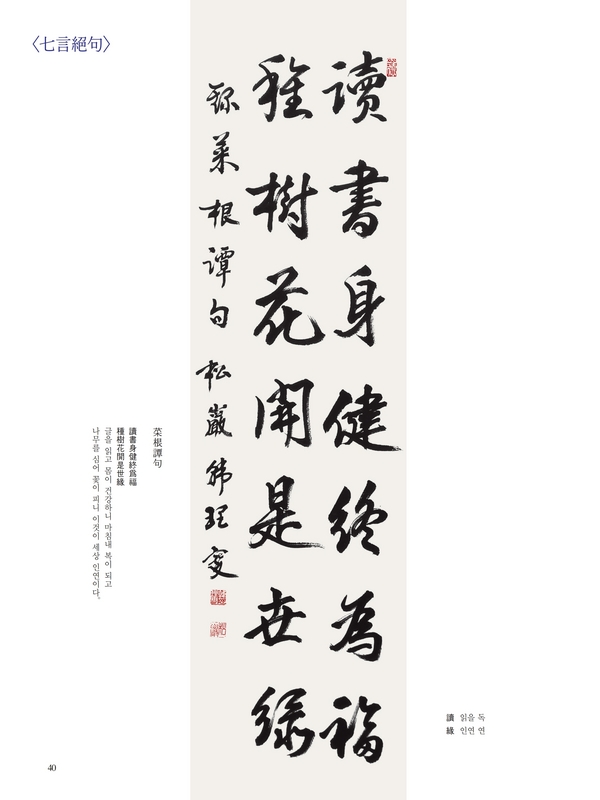 〈七言絕句〉
讀書身健終為福
種樹花開是世緣
錄菜根譚句 松巖
菜根譚句
讀書身健終爲福
種樹花開是世緣
글을 읽고 몸이 건강하니 마침내 복이 되고
나무를 심어 꽃이 피니 이것이 세상 인연이다.
讀 읽을 독
緣 인연 연
40